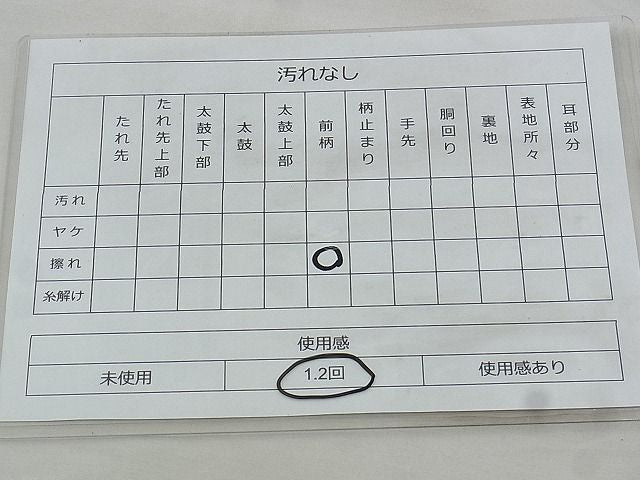 汚れなし
たれ先 たれ先上部 太鼓下部 太鼓 太鼓上部 前柄 柄止まり 手先 胴回り 裏地 表地所々 耳部分
汚れ
ヤケ
擦れ
糸解け
使用感
未使用 1.2回 使用感あり